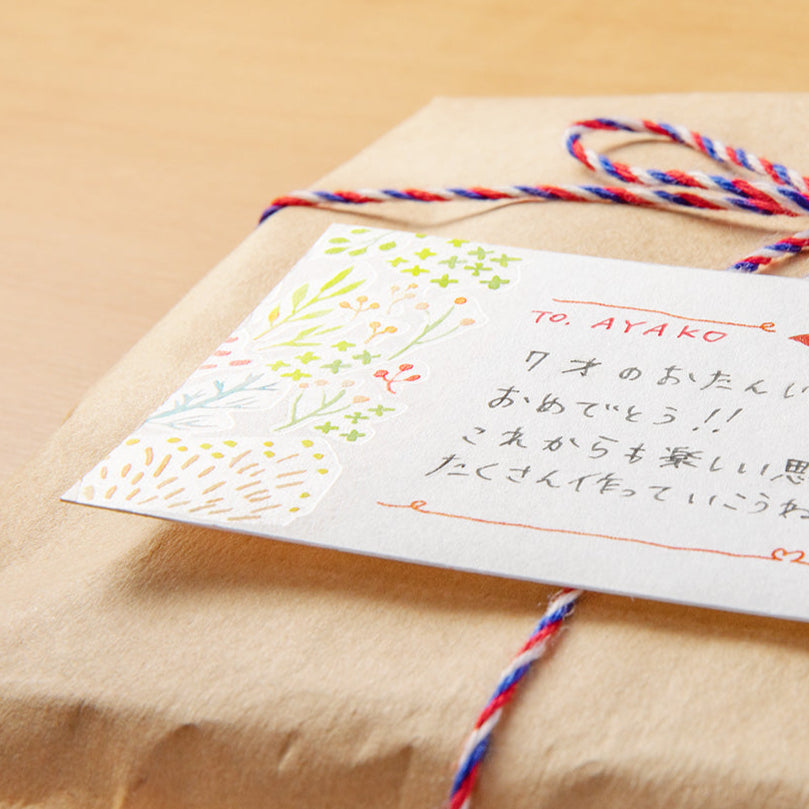 TO. AYAKO
7才のおたんい
おめでとう!!
これからも楽しい思
たくさん作っていこうね